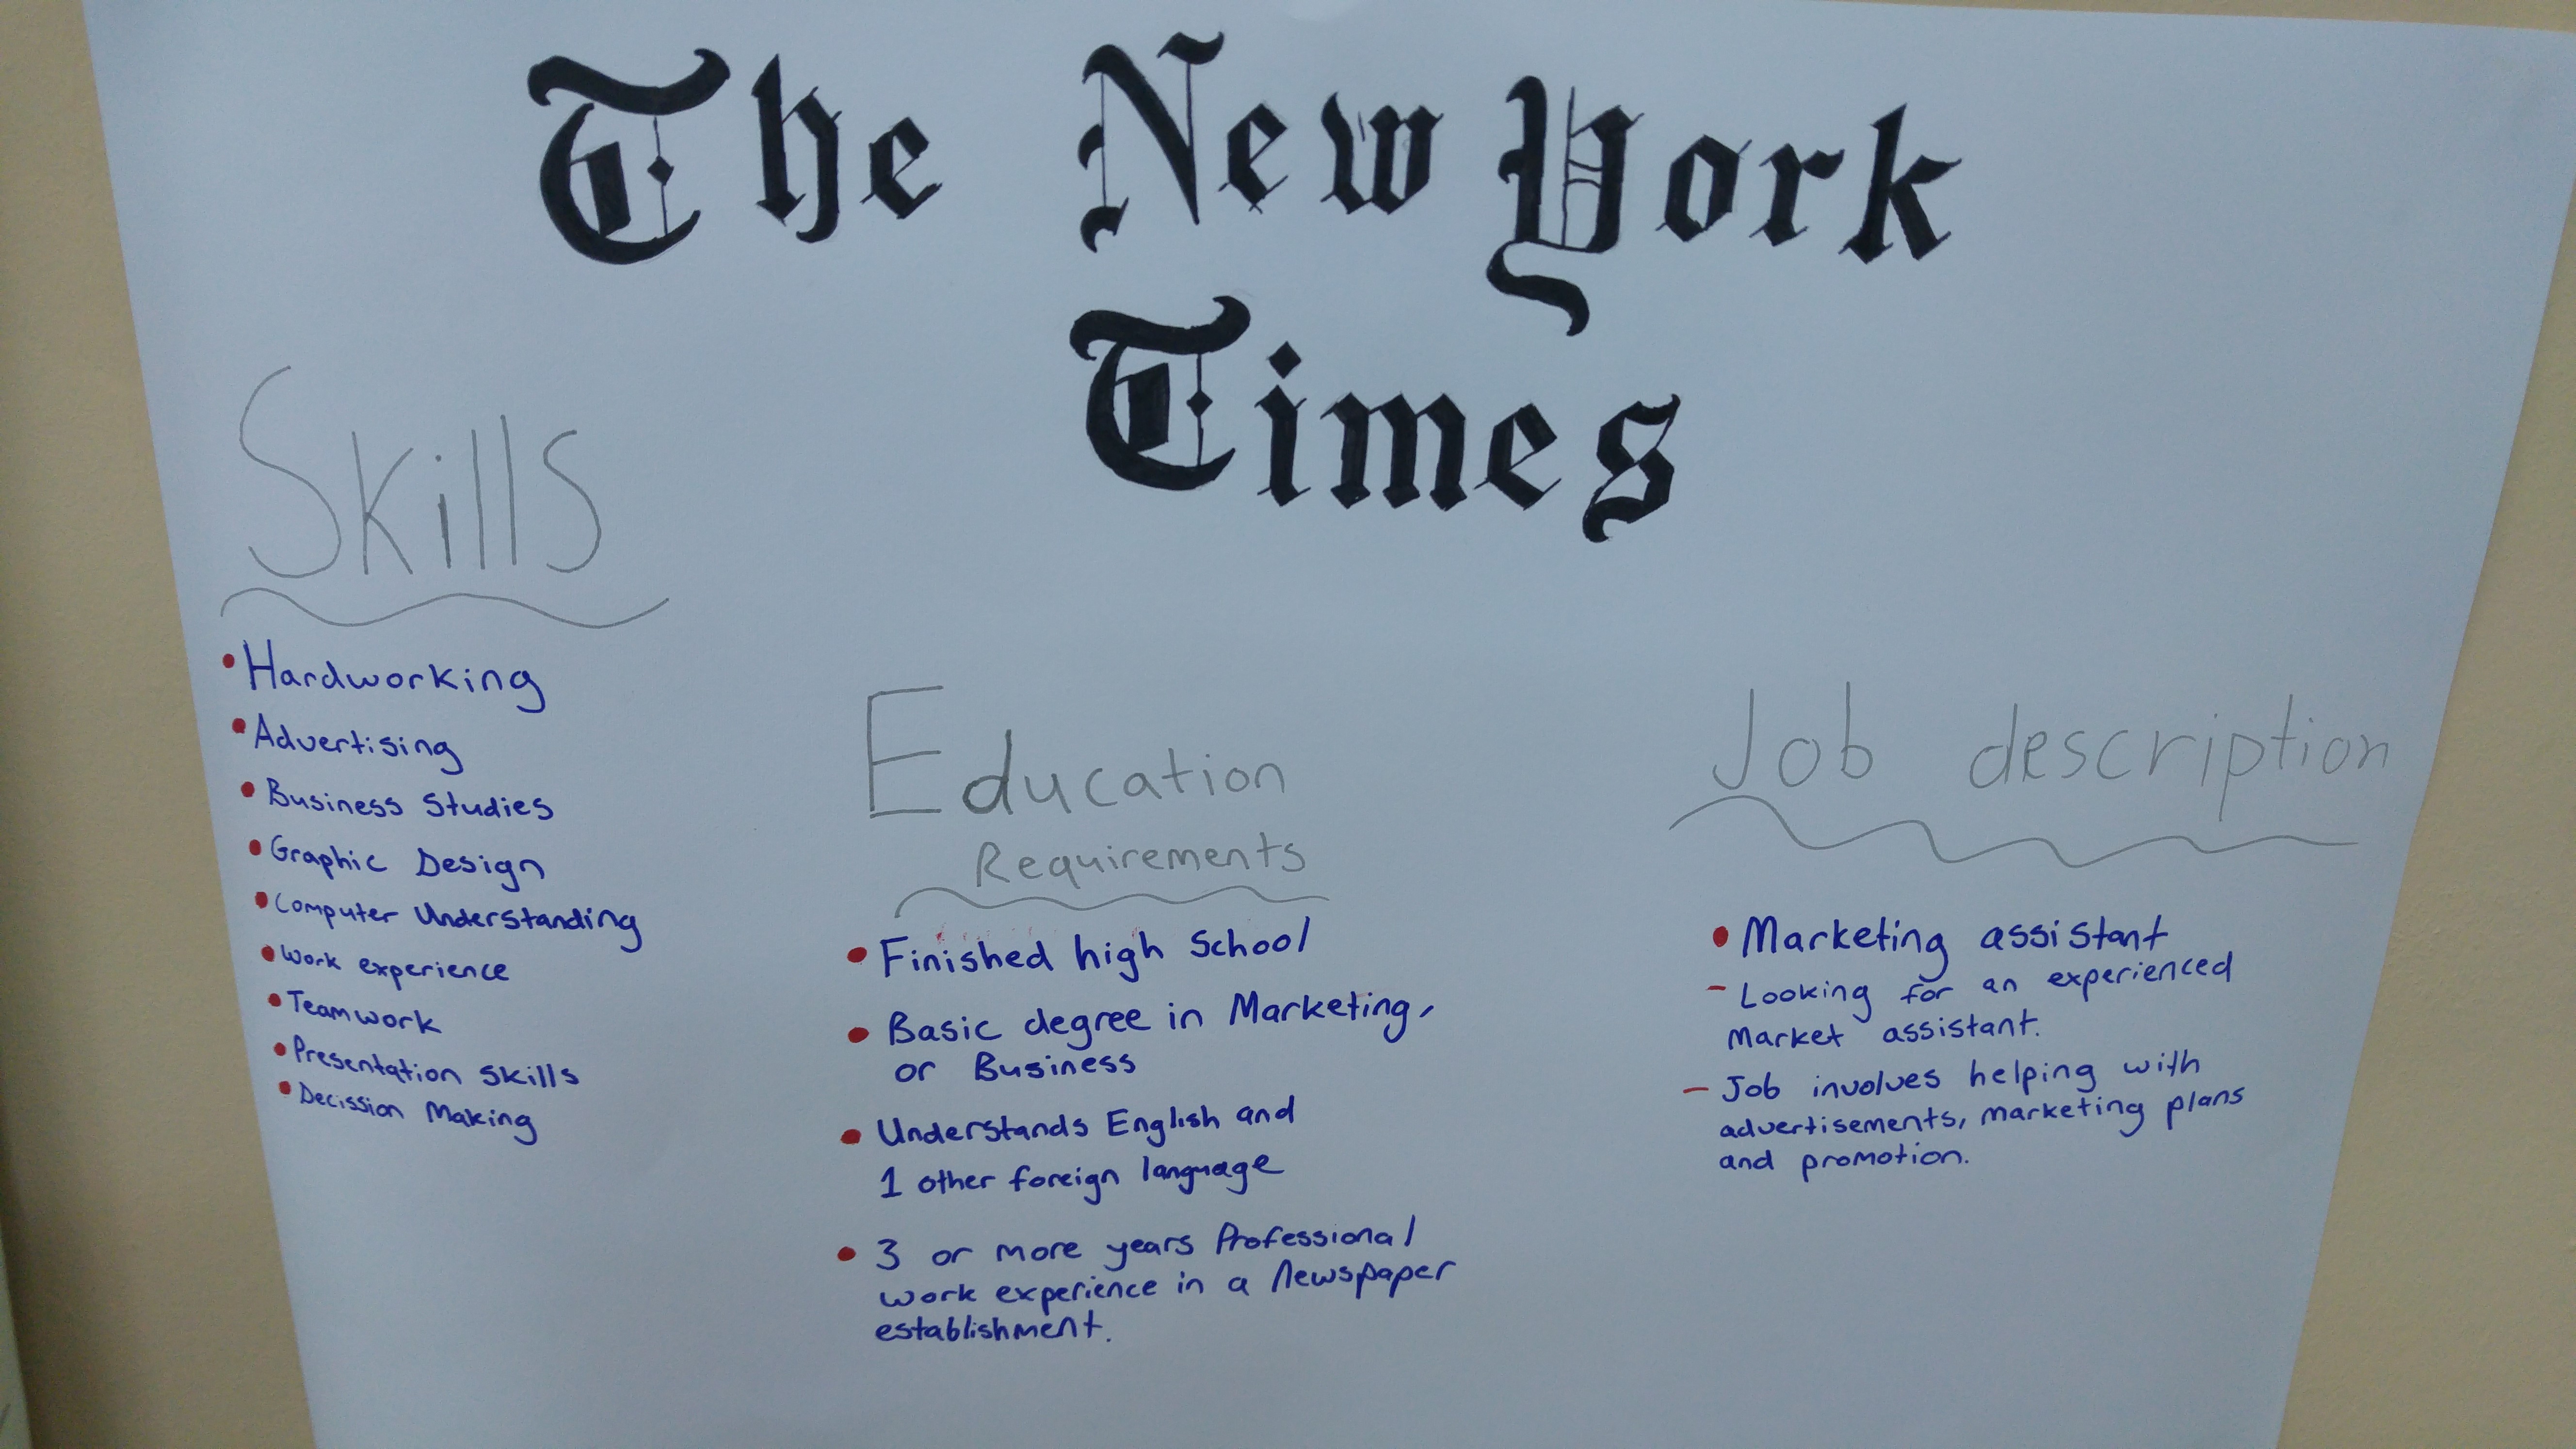 The New York
Times
Skills
Hardworking
Advertising
Business Studies
Graphic Design
Computer Understanding
Work experience
Teamwork
Presentation skills
Decission Making
Education
Requirements
Finished high School
Basic degree in Marketing,
or Business
Understands English and
1 other foreign language
3 or more years Professional
work experience in a Newspaper
establishment.
Job description
Marketing assistant
- Looking for an experienced
Market assistant.
- Job involves helping with
advertisements, marketing plans
and promotion.